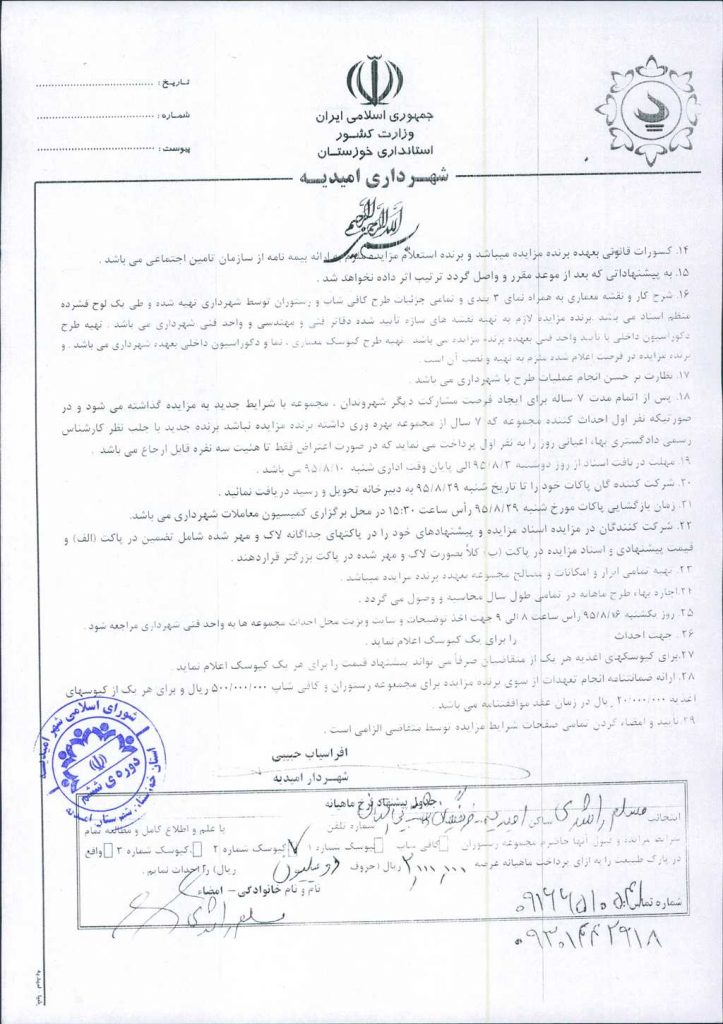 جمهوری اسلامی ایران
وزارت کشور
استانداری خوزستان
شهرداری امیدیه
تاریخ :
شماره :
پیوست :
۱۴. کسورات قانونی بعهده برنده مزایده میباشد و برنده استعلام مزایده ارائه بیمه نامه از سازمان تامین اجتماعی می باشد .
۱۵. به پیشنهاداتی که بعد از موعد مقرر و واصل گردد ترتیب اثر داده نخواهد شد .
۱۶. شرح کار و نقشه معماری به همراه نمای ۳ بندی و تمامی جزئیات طرح کافی شاپ و رستوران توسط شهرداری تهیه شده و طی یک لوح فشرده
منظم اسناد می باشد .برنده مزایده لازم به تهیه نقشه های سازه تأیید شده دفاتر فنی و مهندسی و واحد فنی شهرداری می باشد . تهیه طرح
دکوراسیون داخلی با تأیید واحد فنی بعهده برنده مزایده می باشد . تهیه طرح کیوسک معماری ، نما و دکوراسیون داخلی بعهده شهرداری می باشد . و
برنده مزایده در فرصت اعلام شده ملزم به تهیه و نصب آن است .
۱۷. نظارت بر حسن انجام عملیات طرح با شهرداری می باشد .
۱۸. پس از اتمام مدت ۷ ساله برای ایجاد فرصت مشارکت دیگر شهروندان ، مجموعه با شرایط جدید به مزایده گذاشته می شود و در
صورتیکه نفر اول احداث کننده مجموعه که ۷ سال از مجموعه بهره وری داشته برنده مزایده نباشد برنده جدید با جلب نظر کارشناس
رسمی دادگستری بهاء اعیانی روز را به نفر اول پرداخت می نماید که در صورت اعتراض فقط تا هئیت سه نفره قابل ارجاع می باشد .
۱۹. مهلت دریافت اسناد از روز دوشنبه ۹۵/۸/۳ الی پایان وقت اداری شنبه ۹۵/۸/۱۰ می باشد .
۲۰. شرکت کننده گان پاکات خود را تا تاریخ شنبه ۹۵/۸/۲۹ به دبیرخانه تحویل و رسید دریافت نمائید .
۲۱. زمان بازگشایی پاکات مورخ شنبه ۹۵/۸/۲۹ رأس ساعت ۱۵:۳۰ در محل برگزاری کمیسیون معاملات شهرداری می باشد.
۲۲. شرکت کنندگان در مزایده اسناد مزایده و پیشنهادهای خود را در پاکتهای جداگانه لاک و مهر شده شامل تضمین در پاکت (الف) و
قیمت پیشنهادی و اسناد مزایده در پاکت (ب) کلاً بصورت لاک و مهر شده در پاکت بزرگتر قراردهند .
۲۳. تهیه تمامی ابزار و امکانات و مصالح مجموعه بعهده برنده مزایده میباشد .
۲۴.اجاره بهاء طرح ماهانه در تمامی طول سال محاسبه و وصول می گردد .
۲۵. روز یکشنبه ۹۵/۸/۱۶ رأس ساعت ۸ الی ۹ جهت اخذ توضیحات و سایت ویزیت محل احداث مجموعه ها به واحد فنی شهرداری مراجعه شود .
۲۶. جهت احداث را برای یک کیوسک اعلام نماید .
۲۷.برای کیوسکهای اغذیه هر یک از متقاضیان صرفاً می تواند پیشنهاد قیمت را برای هر یک کیوسک اعلام نماید .
۲۸. ارائه ضمانتنامه انجام تعهدات از سوی برنده مزایده برای مجموعه رستوران و کافی شاپ ۵۰۰/۰۰۰/۰۰۰ ریال و برای هر یک از کیوسهای
اغذیه ۲۰/۰۰۰/۰۰۰ ریال در زمان عقد موافقتنامه می باشد .
۲۹. تأیید و امضاء کردن تمامی صفحات شرایط مزایده توسط متقاضی الزامی است .
افراسیاب حبیبی
شهردار امیدیه
شورای اسلامی شهر امیدیه
دوره ی ششم
استان خوزستان شهرستان امیدیه
جدول پیشنهاد نرخ ماهیانه
اینجانب مسلم راشدی ساکن امیدیه شماره تلفن با علم و اطلاع کامل و مطالعه تمام
شرایط مزایده و قبول آنها حاضرم مجموعه رستوران کافی شاپ کیوسک شماره ۱ کیوسک شماره ۲ کیوسک شماره ۳ واقع
در پارک طبیعت را به ازای پرداخت ماهیانه عرصه ۲,۰۰۰,۰۰۰ ریال (حروف دو میلیون ریال) را احداث نمایم .
نام و نام خانوادگی – امضاء
شماره تماس
مسلم راشدی
۰۹۳۰۱۴۴۲۹۱۸